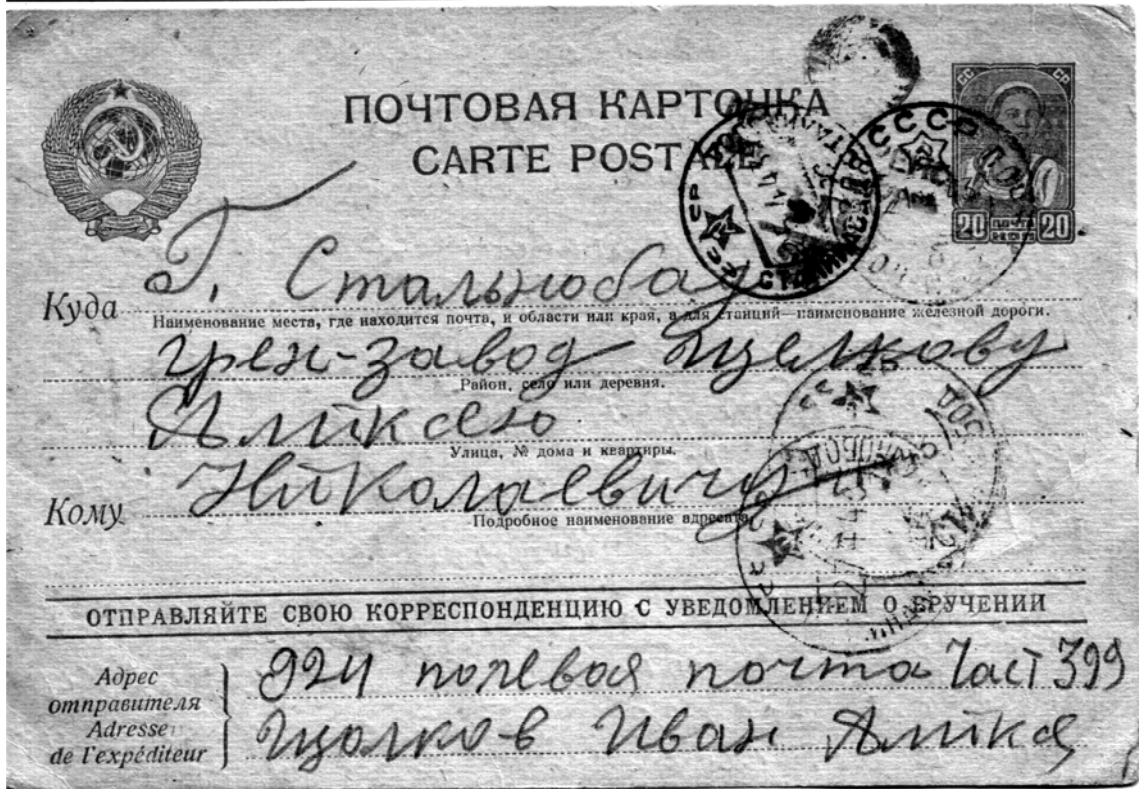 ПОЧТОВАЯ КАРТОЧКА
CARTE POSTALE
СС СР
20 ПОЧТА КОП 20
СССР
СТАЛИНАБАД
Куда Г. Стальнобад
Наименование места, где находится почта, и области или края, а для станций—наименование железной дороги.
Грен-завод Щелкову
Район, село или деревня.
Алмксею
Улица, № дома и квартиры.
Кому Николаевичу
Подробное наименование адресата
ОТПРАВЛЯЙТЕ СВОЮ КОРРЕСПОНДЕНЦИЮ С УВЕДОМЛЕНИЕМ О ВРУЧЕНИИ
Адрес отправителя
Adresse de l'expéditeur
924 полевая почта Част 399
Щолков Иван